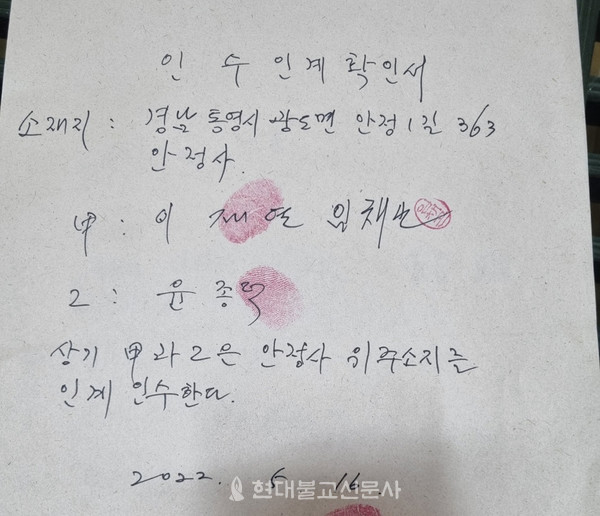 인 수 인 계 확 인 서
소재지 : 경남 통영시 광도면 안정1길 363
안정사.
甲 : 이 재 연 임채
乙 : 윤 종
상기 甲과 乙은 안정사 위주소지를
인계 인수한다.
2022. 5 16.
현대불교신문사